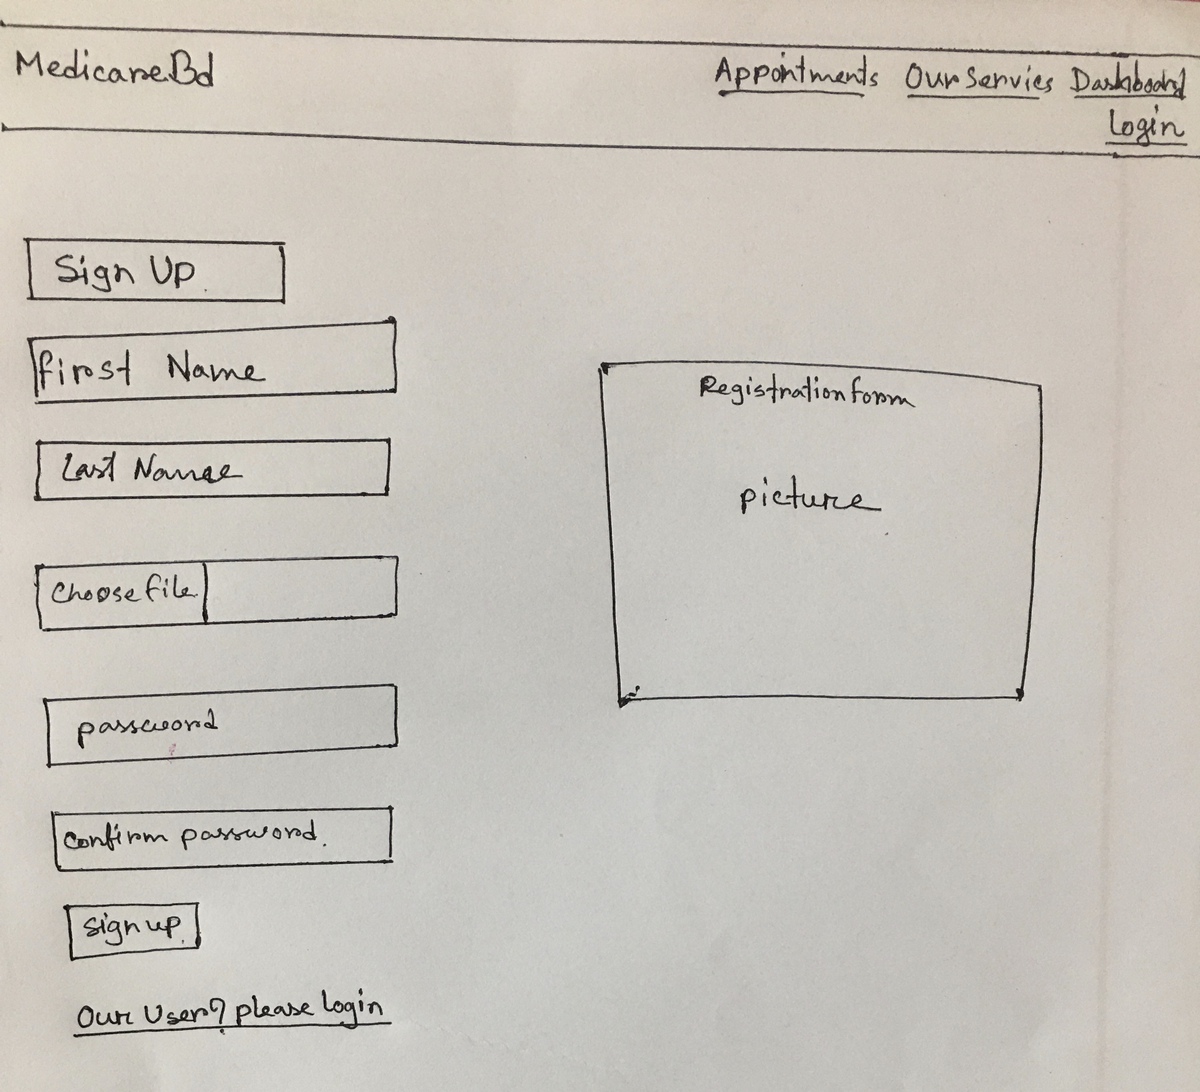 Medicare.Bd
Appointments Our Servies Dashboard
Login
Sign Up
First Name
Last Name
Choose file
password
Confirm password.
Sign up
Our User? please login
Registration form
picture